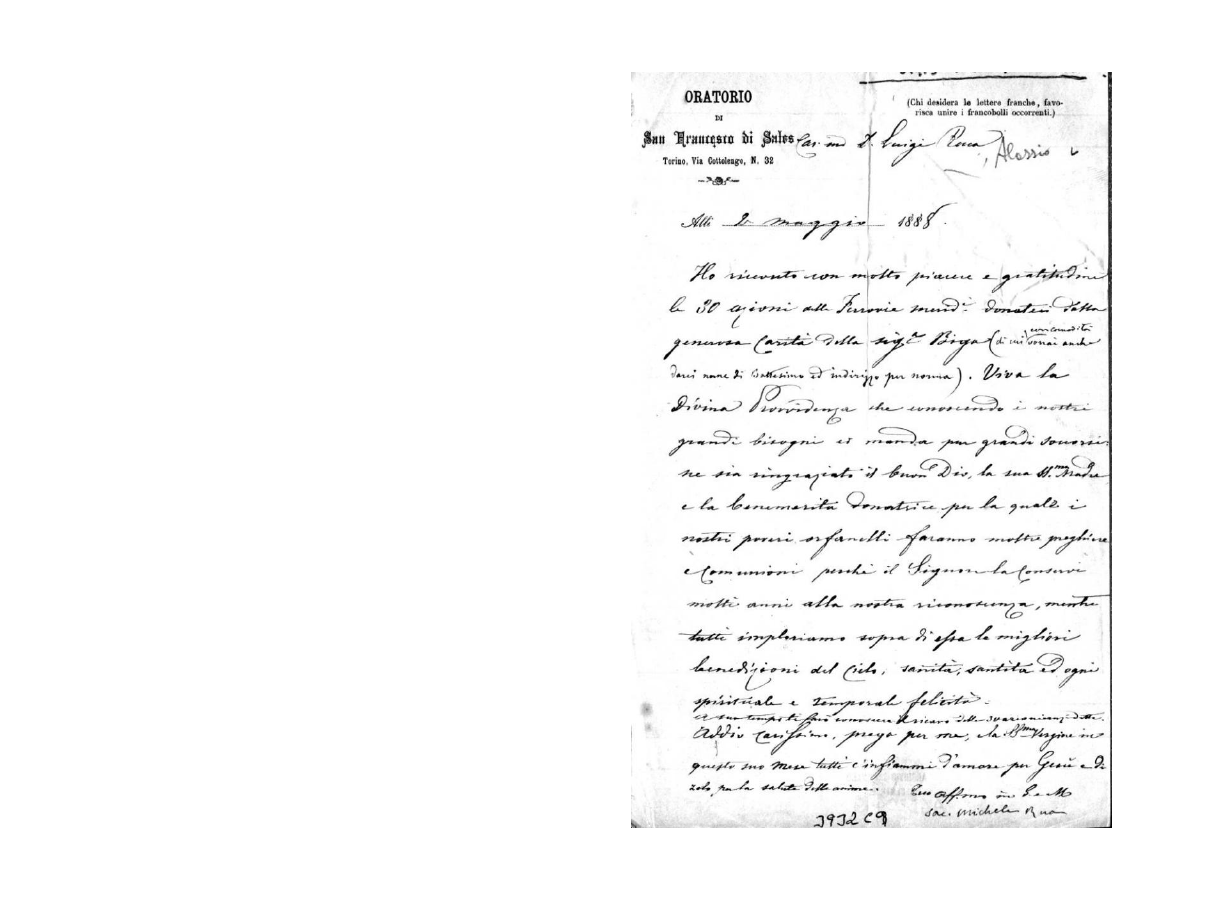 ORATORIO
DI
San Francesco di Sales
Torino, Via Cottolengo, N. 32
(Chi desidera le lettere franche, favo-
risca unire i francobolli occorrenti.)
Car.mo D. Luigi Rocca
Alassio
Alli 2 maggio 1888.
Ho ricevuto con molto piacere e gratitudine
le 30 azioni delle Ferrovie merid.i donateci dalla
generosa Carità della sig.ra Biga (di cui con comodità vorrai anche
darci nome di battesimo ed indirizzo per norma). Viva la
Divina Provvidenza che conoscendo i nostri
grandi bisogni ci manda pur grandi soccorsi:
ne sia ringraziato il buon Dio, la sua SS.ma Madre
e la benemerita donatrice per la quale i
nostri poveri orfanelli faranno molte preghiere
e Comunioni perchè il Signore la Conservi
molti anni alla nostra riconoscenza, mentre
tutti imploriamo sopra di essa le migliori
benedizioni del Cielo, sanità, santità ed ogni
spirituale e temporale felicità.
A suo tempo ti farò conoscere il ricavo delle 30 azioni anzidette.
Addio Carissimo, prega per me, e la SS.ma Vergine in
questo suo mese tutti c'infiammi d'amore per Gesù e di
zelo per la salute delle anime.
Tuo aff.mo in G. e M.
Sac. Michele Rua
3932 C9